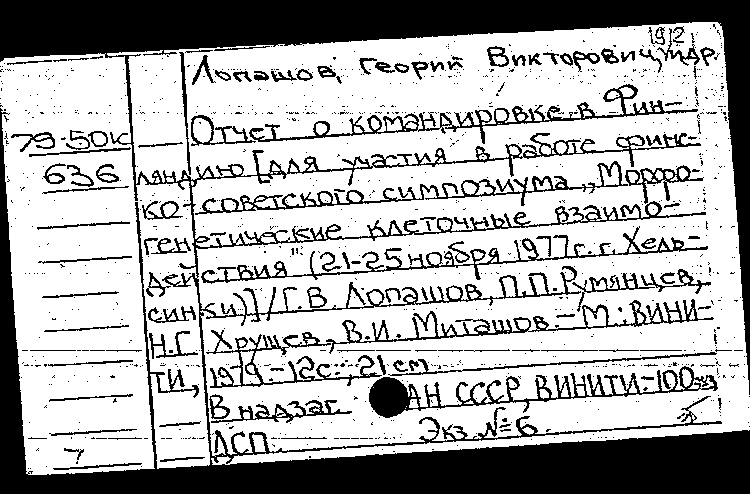 1912
Лопашов, Георгий Викторович, и др.
79-50к
636
Отчет о командировке в Фин-
ляндию [для участия в работе финс-
ко-советского симпозиума „Морфо-
генетические клеточные взаимо-
действия" (21-25 ноября 1977г. г. Хель-
синки)] / Г.В. Лопашов, П.П. Румянцев,
Н.Г. Хрущев, В.И. Миташов. - М.: ВИНИ-
ТИ, 1979. - 12с.; 21 см
В надзаг. АН СССР, ВИНИТИ. - 100 экз
ДСП. Экз. № 6.